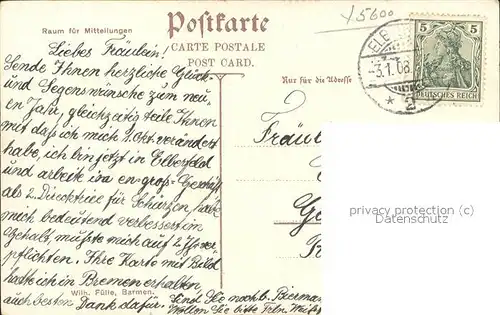 Raum für Mitteilungen
Postkarte
CARTE POSTALE
POST CARD.
Nur für die Adresse
X5600
ELBE
-5.1.08.
* 2
5 5
DEUTSCHES REICH
Liebes Fräulein!
Sende Ihnen herzliche Glück-
und Segenswünsche zum neu-
en Jahr, gleichzeitig teile Ihnen
mit daß ich mich 1. Okt. verändert
habe, ich bin jetzt in Elberfeld
und arbeite in en-gros-Geschäft
als 2. Direktrice für Schürzen, habe
mich bedeutend verbessert im
Gehalt, mußte mich auf 2 J. ver-
pflichten. Ihre Karte mit Bild
hatte ich in Bremen erhalten,
auch besten Dank dafür. Sind Sie noch b. Bierman
Wollen Sie bitte Frln.
Wilh. Fülle, Barmen.
Fräu
privacy protection (c)
Datenschutz